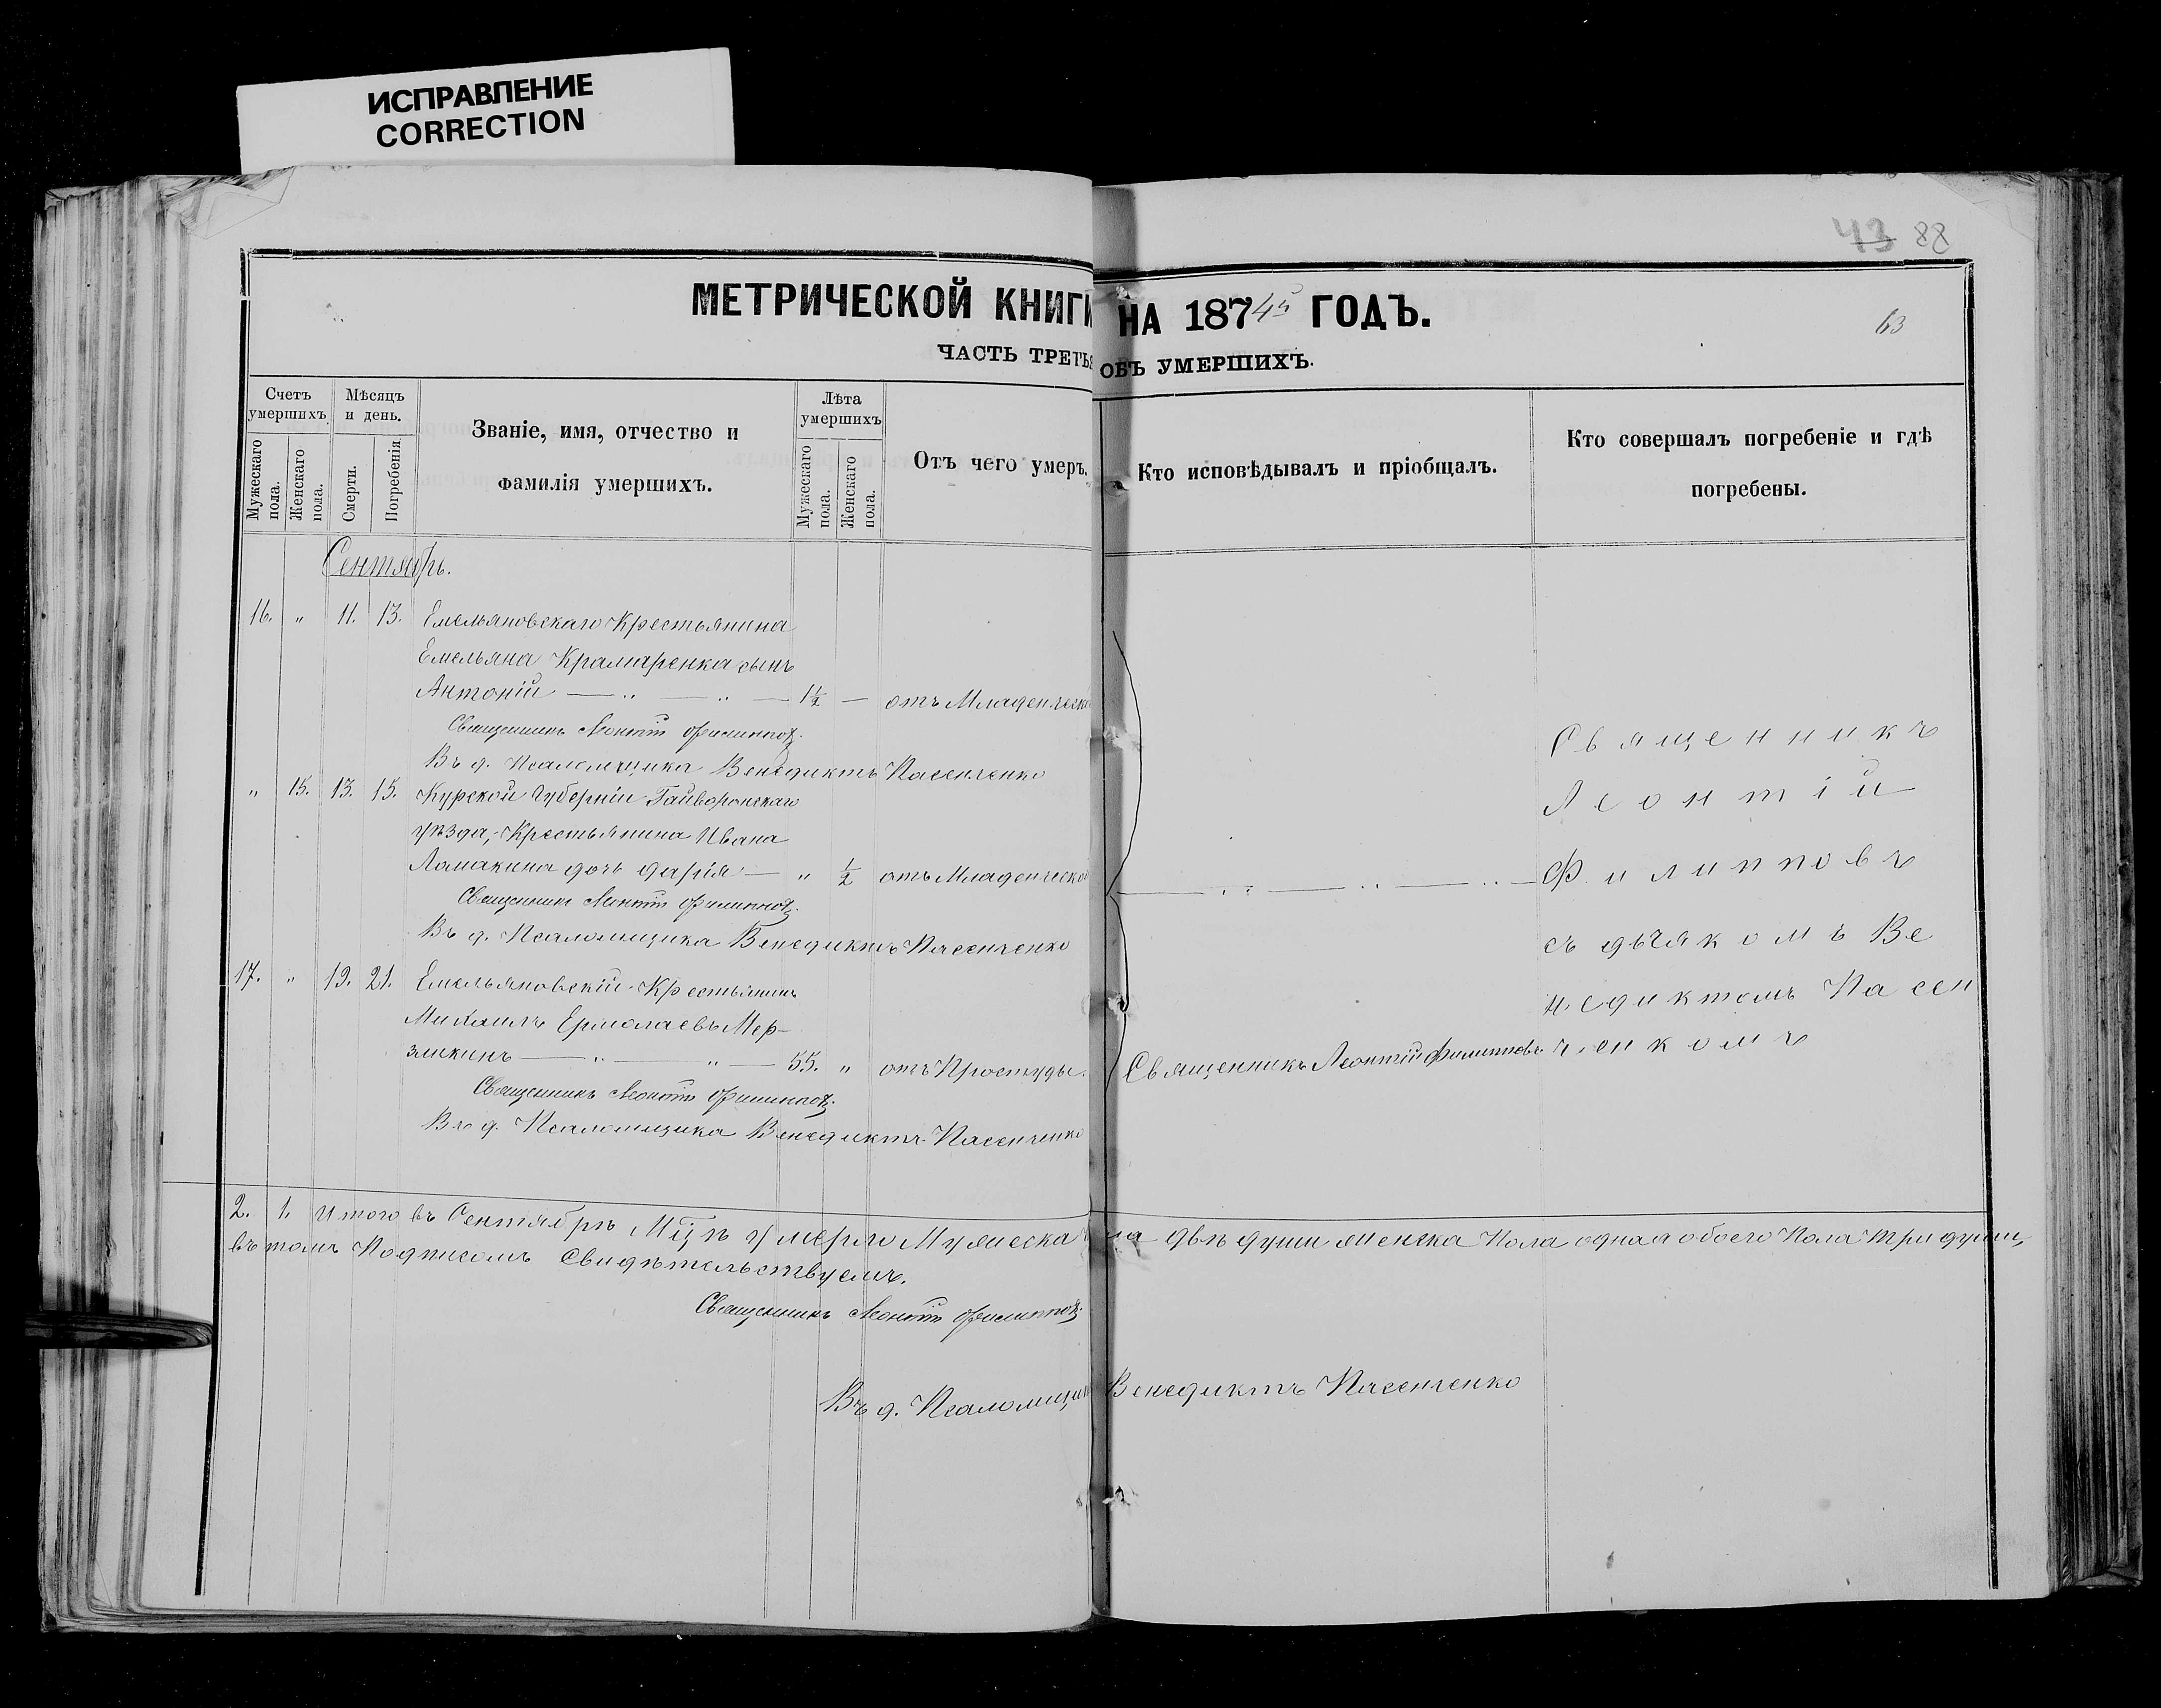 ИСПРАВЛЕНИЕ
CORRECTION
43 88
МЕТРИЧЕСКОЙ КНИГИ НА 1874й ГОДЪ.
63
ЧАСТЬ ТРЕТЬЯ ОБЪ УМЕРШИХЪ.
Счетъ умершихъ
Мужескаго пола.
Женскаго пола.
Мѣсяцъ и день.
Смерти.
Погребенія
Званіе, имя, отчество и
фамилія умершихъ.
Лѣта умершихъ
Мужескаго пола.
Женскаго пола.
Отъ чего умеръ.
Кто исповѣдывалъ и пріобщалъ.
Кто совершалъ погребеніе и гдѣ
погребены.
Сентябрь.
16. " 11. 13. Емельяновскаго Крестьянина
Емельяна Крамаренка сынъ
Антоній — " — " — 1½ — отъ Младенческо
Священникъ Леонтій Филипповъ.
Въ д. Псаломщика Венедиктъ Пасенченко
" 15. 13. 15. Курской Губерніи Гайворонскаго
уѣзда, Крестьянина Ивана
Ломакина дочь Дарія — " ½ отъ Младенческой
Священникъ Леонтій Филипповъ.
Въ д. Псаломщика Венедиктъ Пасенченко
17. " 19. 21. Емельяновскій Крестьянинъ
Михаилъ Ермолаевъ Мер-
зликинъ — " — " — 55. " отъ Простуды. Священникъ Леонтій Филипповъ
Священникъ Леонтій Филипповъ.
Въ д. Псаломщика Венедиктъ Пасенченко
Священникъ
Леонтій
Филипповъ
съ дьякомъ Ве
недиктомъ Пасен
ченкомъ
2. 1. Итого въ Сентябрѣ Мцѣ умерло Мужеска пола двѣ души женска Пола одная обоего Пола три души,
въ томъ Подписомъ Свидѣтельствуемъ.
Священникъ Леонтій Филипповъ.
Въ д. Псаломщик Венедиктъ Пасенченко